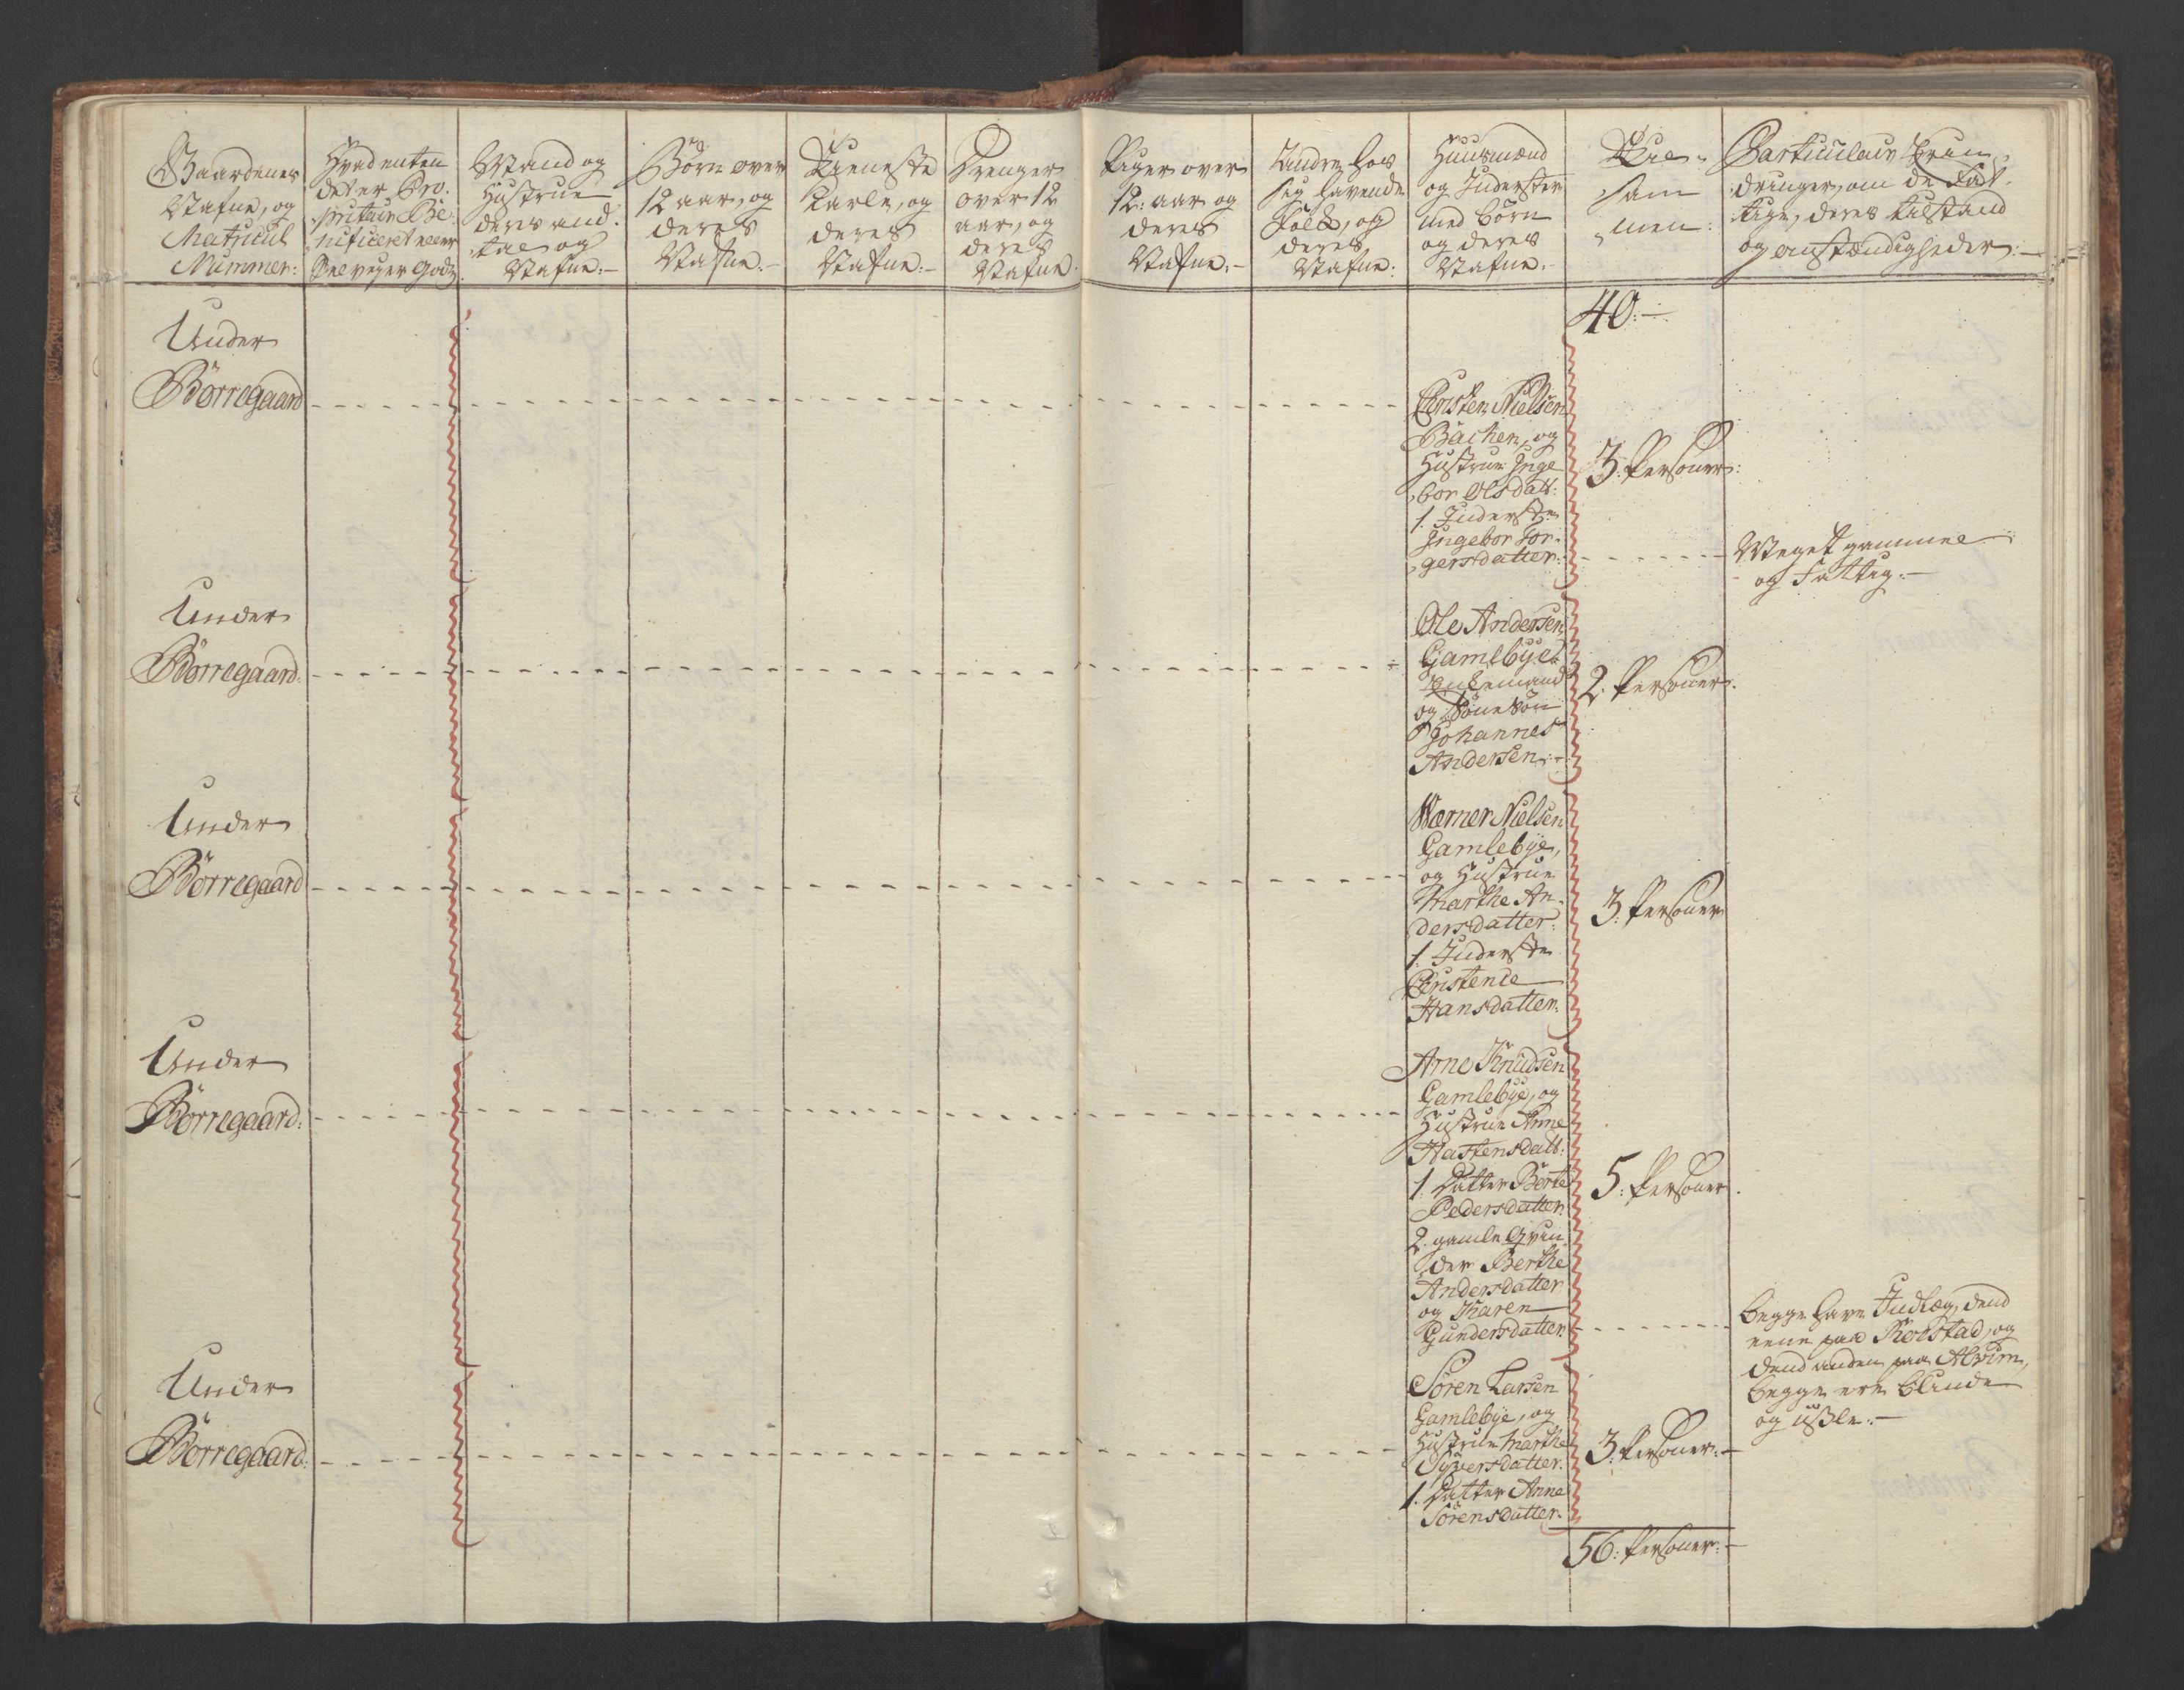 Gaardenes
Nafne, og
Matricul
Nummer:
Hvad enten
det er Pro-
prietair Be-
nificeret eller
Selveyer Gods.
Mand og
Hustrue
deres and-
tal og
Nafne:-
Børn over
12 aar, og
deres
Nafne:-
Tieneste
Karle, og
deres
Nafne:-
Drenger
over 12
aar, og
deres
Nafne
Piger over
12: aar og
deres
Nafne:-
Andre hos
sig havende
Folck, og
deres
Nafne:
Huusmænd
og Inderster
med børn
og deres
Nafne:
Til-
sam
men:
Particulair Erin-
dringer, om de Fat-
tige, deres tilstand
og omstændigheder:-
40:-
Under
Børregaard
Christen Nielsen
Bachen, og
Hustrue Inge
bor Olsdatt:
1. Inderste
Ingebor Tor-
gersdatter:
3: Personer:
Meget gammel
og Fattig:-
Under
Børregaard:
Ole Andersen
Gamlebye
Enkemand
og Sønesøn
Johannes
Andersen:-
2: Personer.
Under
Børregaard
Werner Nielsen
Gamlebye,
og Hustrue
Marthe An-
dersdatter:
1. Inderste
Christence
Hansdatter:
3: Personer
Under
Børregaard:
Arne Knudsen
Gamlebye, og
Hustrue Anne
Hastensdatt:
1. Datter Berte
Pedersdatter
2. gamle Qvin
der Berthe
Andersdatter
og Karen
Gundersdatter
5: Personer.
begge have Indlæg, dend
eene paa Rolstad, og
dend anden paa Alvim,
begge ere blinde
og usle:-
Under
Børregaard:
Søren Larsen
Gamlebye, og
Hustrue Marthe
Syversdatter
1. Datter Anne
Sørensdatter.
3: Personer:-
56: Personer:-